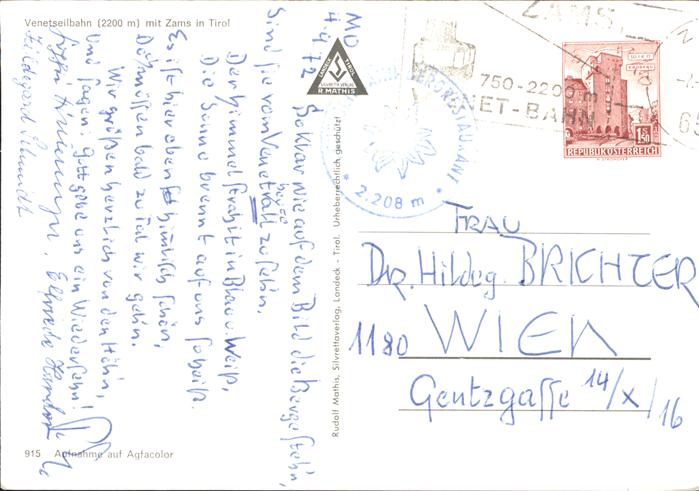 Venetseilbahn (2200 m) mit Zams in Tirol
MO
4 9 72
So klar wie auf dem Bild die Berge stehn,
Sind sie vom Venet all zu sehn.
berge
Der Himmel strahlt in Blau u. Weiß,
Die Sonne brennt auf uns so heiß.
Es ist hier oben himmlisch schön,
Doch müssen bald zu Tal wir gehn.
Wir grüßen herzlich von den Höhn,
Und sagen: Gott gebe uns ein Wiedersehn!
Elfriede
Hildegard Schmidt
LANDECK TIROL
R. MATHIS
Rudolf Mathis, Silvrettaverlag, Landeck - Tirol. Urheberrechtlich geschützt
915 Aufnahme auf Agfacolor
ZAMS,
750-2200 m
NET-BAHN
65
RESTAURANT
2.208 m
WIEN
1S50
REPUBLIK ÖSTERREICH
FRAU
DR. Hildeg. BRICHTER
1180 WIEN
Gentzgasse 14/X/16